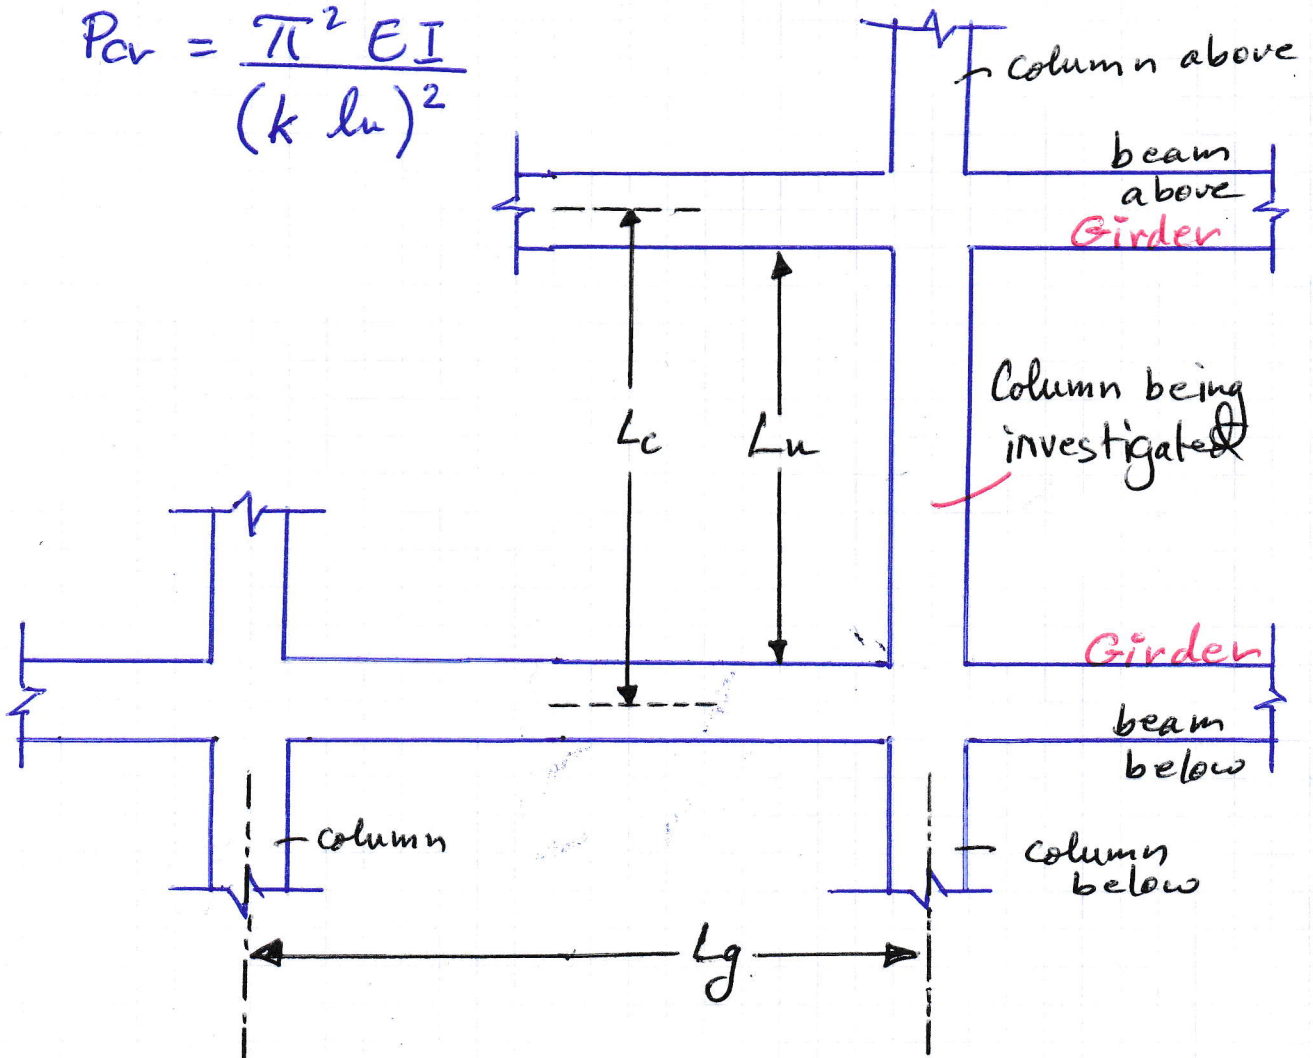 Pcr = π² EI
(k lu)²
column above
beam
above
Girder
Column being
investigated
Lc
Lu
Girder
beam
below
column
column
below
Lg